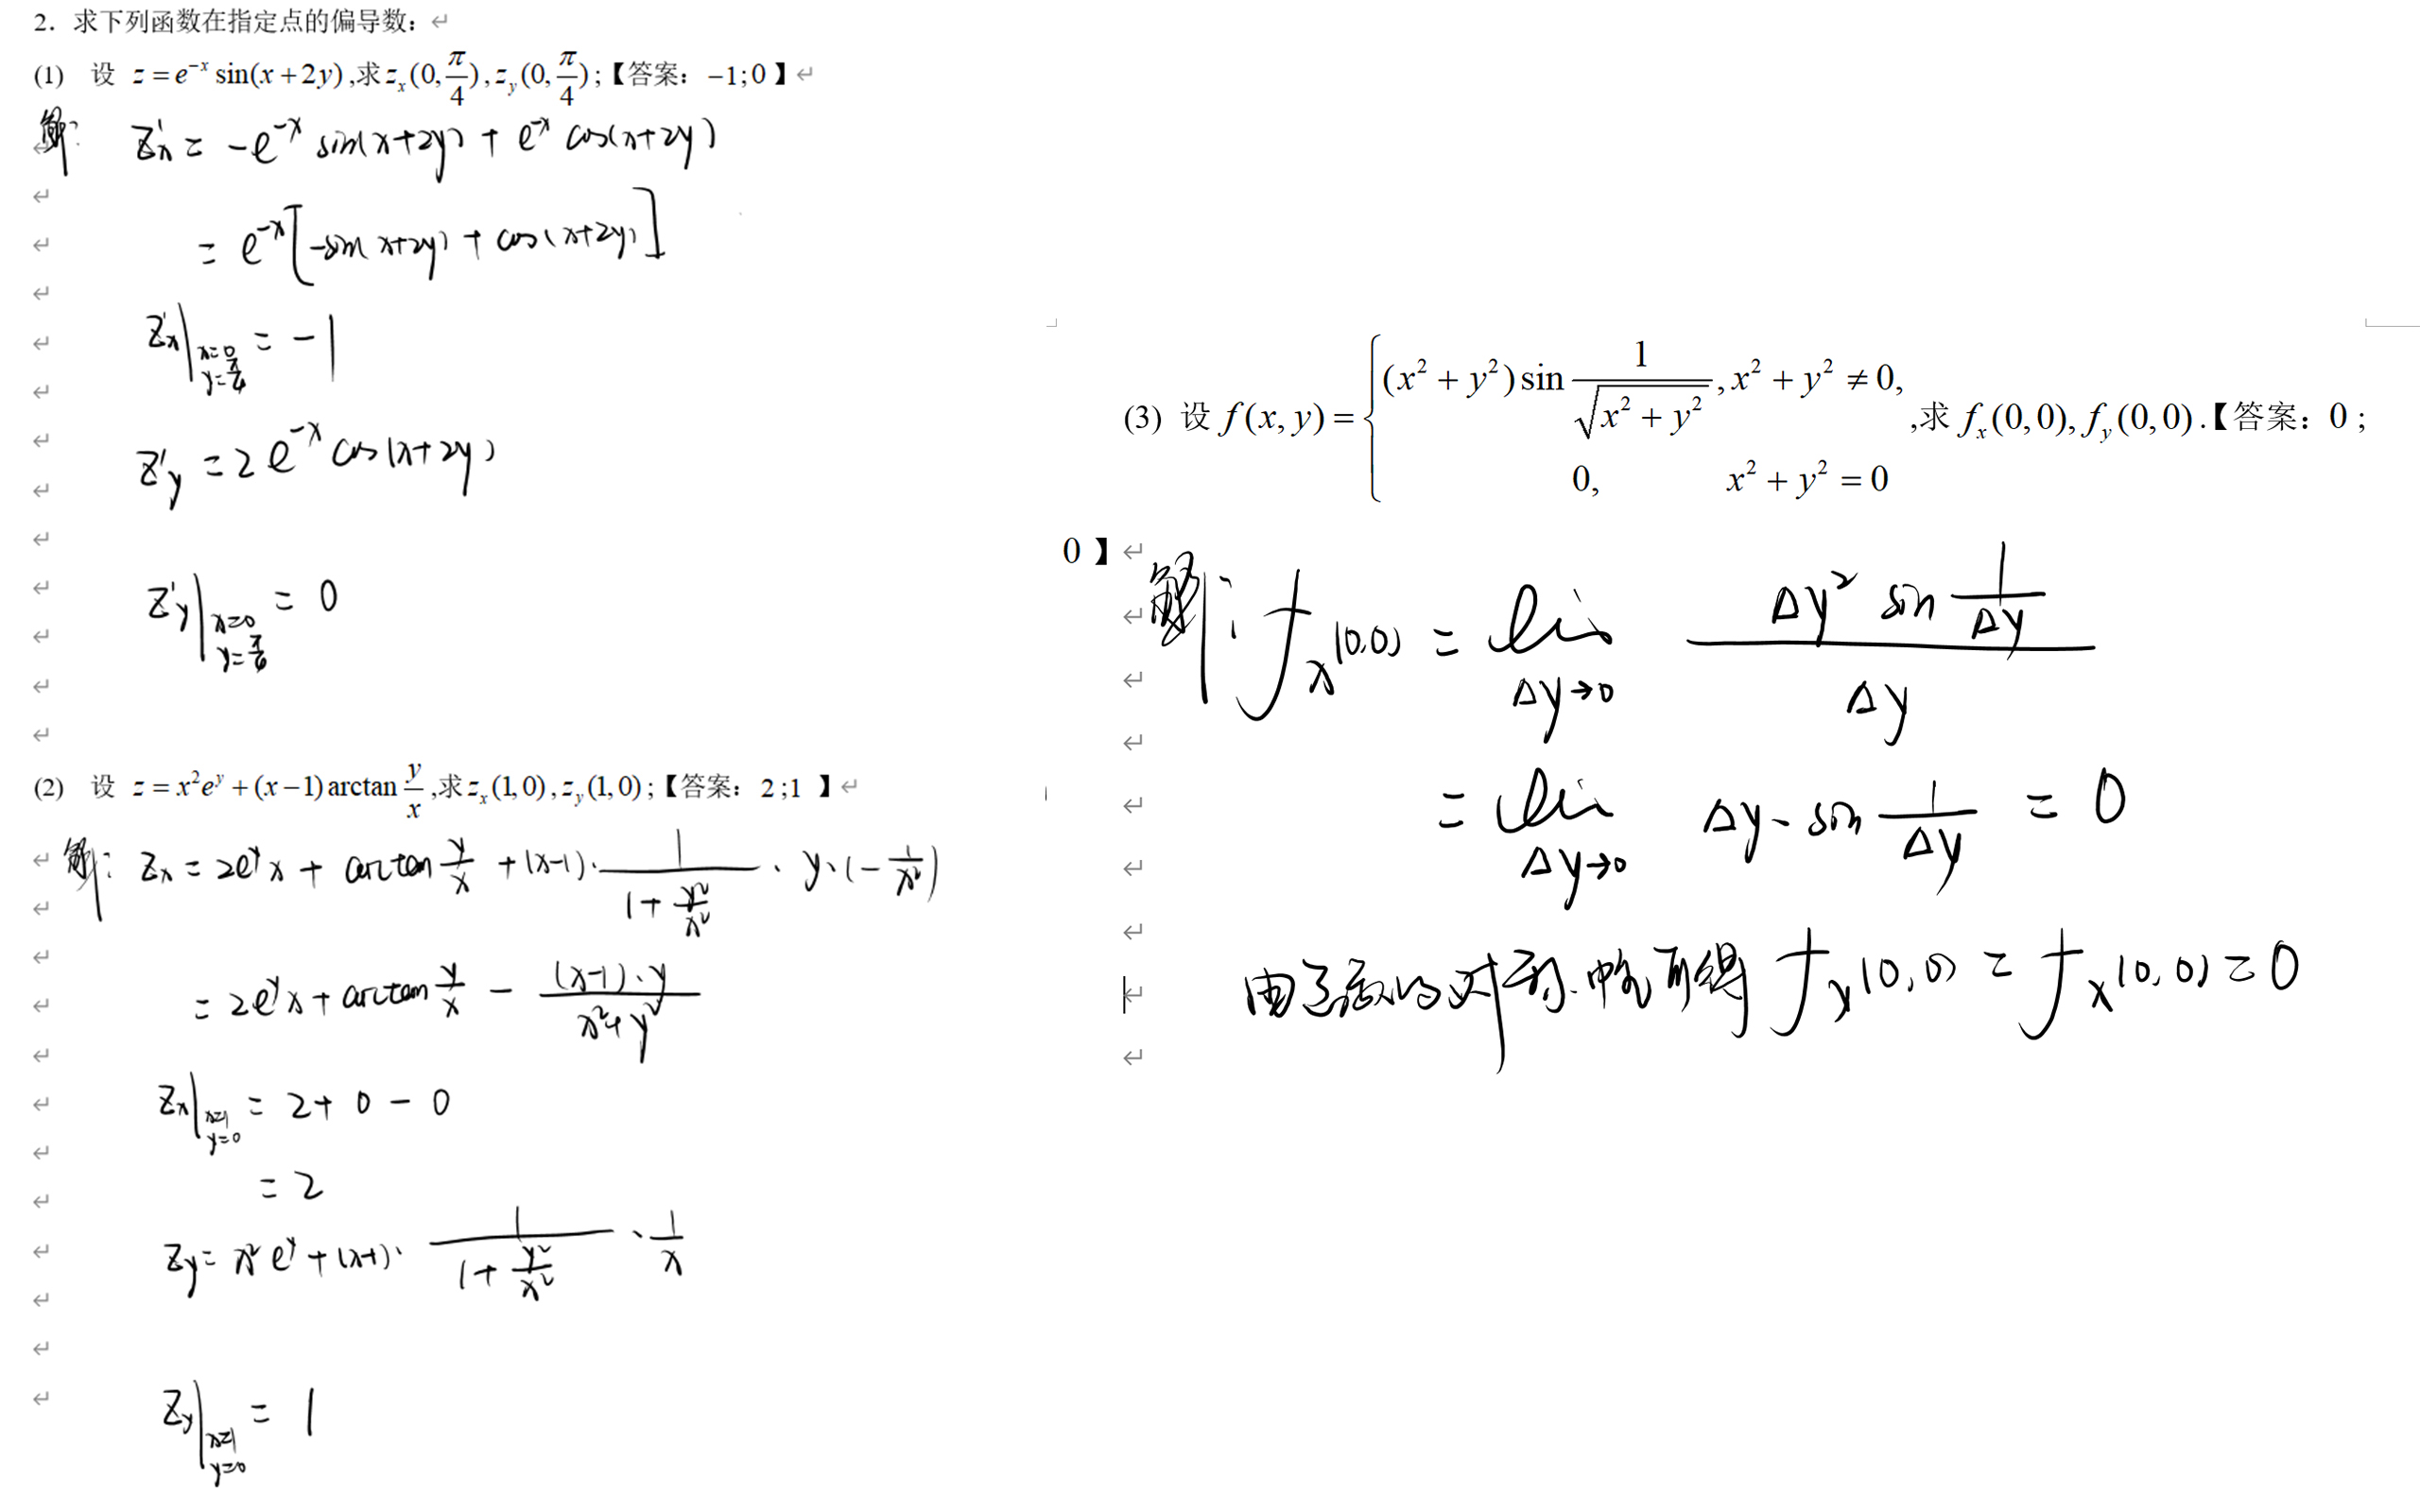 2. 求下列函数在指定点的偏导数：
(1) 设 z = e^{-x} sin(x+2y) ,求 z_x(0, π/4), z_y(0, π/4) ;【答案： −1;0 】
解: z'x = -e^{-x} sin(x+2y) + e^{-x} cos(x+2y)
= e^{-x}[-sin(x+2y) + cos(x+2y)]
z'x|x=0 y=π/4 = -1
z'y = 2e^{-x} cos(x+2y)
z'y|x=0 y=π/6 = 0
(2) 设 z = x²e^y + (x−1) arctan y/x ,求 z_x(1,0), z_y(1,0) ;【答案： 2 ;1 】
解: Zx = 2e^y x + arctan y/x + (x-1)· 1/(1+y²/x²) · y·(-1/x²)
= 2e^y x + arctan y/x - (x-1)·y/(x²+y²)
Zx|x=1 y=0 = 2+0-0
= 2
Zy = x²e^y + (x-1)· 1/(1+y²/x²) · 1/x
Zy|x=1 y=0 = 1
(3) 设 f(x,y) = { (x²+y²) sin 1/√(x²+y²), x²+y² ≠ 0, 0, x²+y² = 0 ,求 f_x(0,0), f_y(0,0) .【答案：0 ;
0 】
解: f_x(0,0) = lim Δy→0 Δy² sin 1/Δy / Δy
= lim Δy→0 Δy· sin 1/Δy = 0
由函数的对称性可得 f_y(0,0) = f_x(0,0) = 0